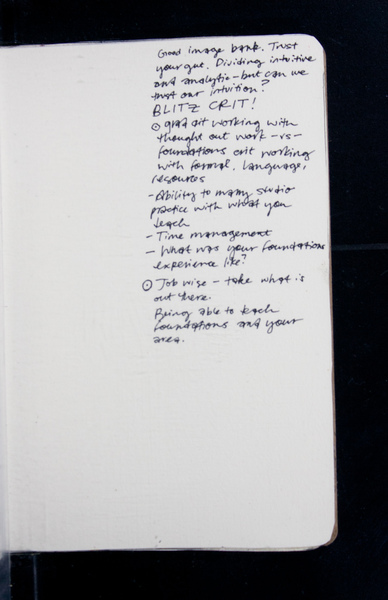 Good image bank. Trust
your gut. Dividing intuitive
and analytic - but can we
trust our intuition?
BLITZ CRIT!
⊙ grad crit working with
thought out work -vs-
foundations crit working
with formal, language,
resources
- Ability to marry studio
practice with what you
teach
- Time management
- What was your foundations
experience like?
⊙ Job wise - take what is
out there.
Being able to teach
foundations and your
area.